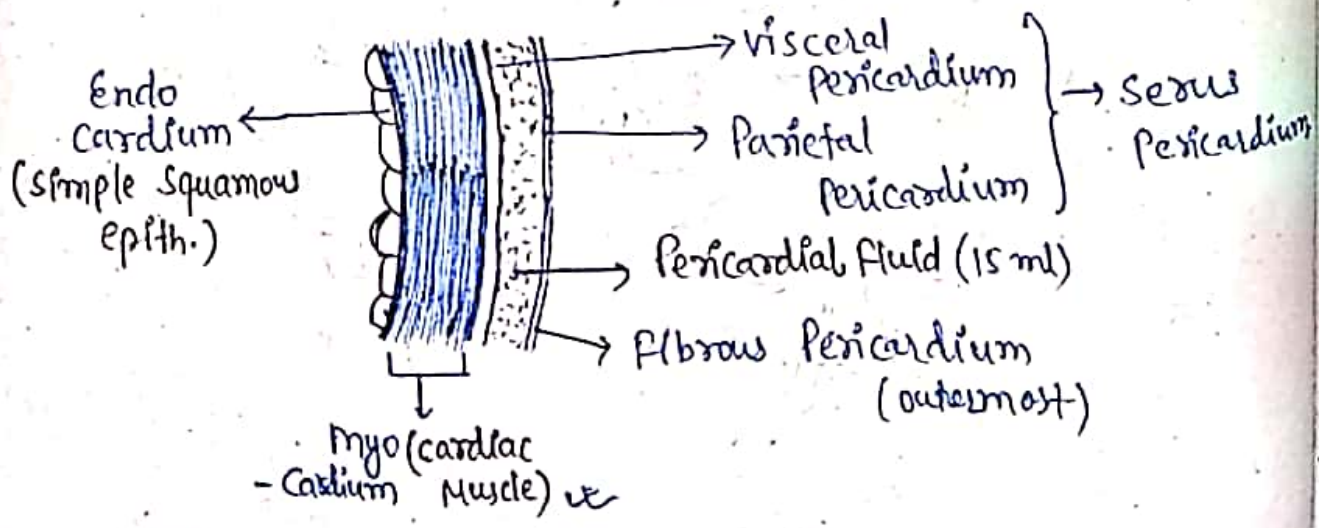 Endo
cardium
(simple squamous
epith.)
visceral
pericardium
Parietal
pericardium
→ serus
pericardium
Pericardial fluid (15 ml)
Fibrous Pericardium
(outermost)
myo (cardiac
- Cardium Muscle)